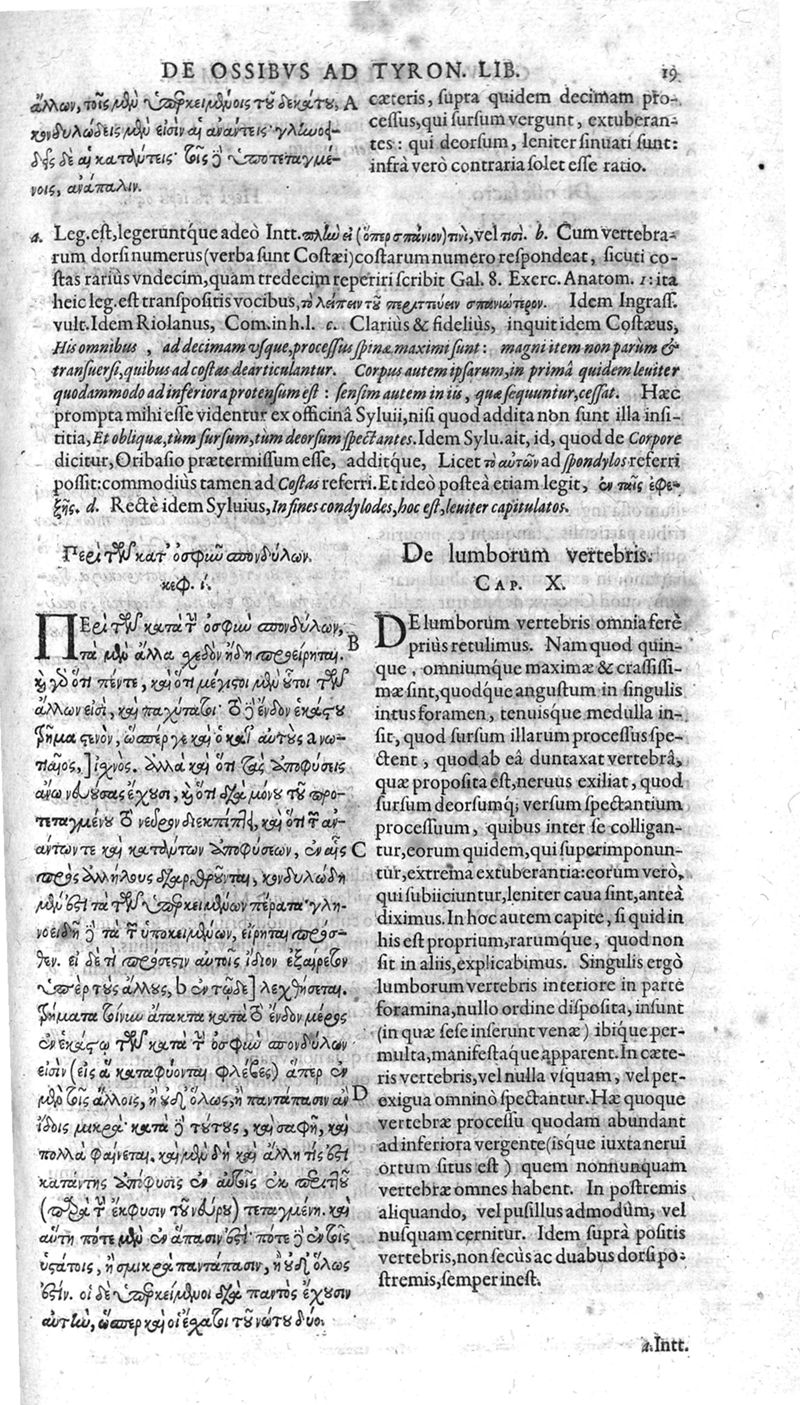 DE OSSIBVS AD TYRON. LIB. 19
ἄλλων, τοῖς μὲν ὑπερκειμένοις τοῦ δεκάτου, A
κονδυλώδεις μέν εἰσιν αἱ ἀνάντεις· γληνοει-
δεῖς δὲ αἱ κατάντεις· τοῖς δὲ ὑποτεταγμέ-
νοις, ἀνάπαλιν.
cæteris, supra quidem decimam pro-
cessus, qui sursum vergunt, extuberan-
tes: qui deorsum, leniter sinuati sunt:
infrà verò contraria solet esse ratio.
a. Leg. est, legeruntque adeò Intt. πλὴν εἰ (ὅπερ σπάνιον) τινὶ, vel τισί. b. Cum vertebra-
rum dorsi numerus (verba sunt Costæi) costarum numero respondeat, sicuti co-
stas rarius vndecim, quam tredecim reperiri scribit Gal. 8. Exerc. Anatom. 1: ita
heic leg. est transpositis vocibus, τὸ λείπειν τοῦ περιττεύειν σπανιώτερον. Idem Ingrass.
vult. Idem Riolanus, Com. in h.l. c. Clariùs & fideliùs, inquit idem Costæus,
His omnibus, ad decimam vsque, processus spinæ maximi sunt: magni item non parùm &
transuersi, quibus ad costas dearticulantur. Corpus autem ipsarum, in primâ quidem leuiter
quodammodo ad inferiora protensum est: sensim autem in iis, quæ sequuntur, cessat. Hæc
prompta mihi esse videntur ex officinâ Syluii, nisi quod addita non sunt illa insi-
titia, Et obliquæ, tùm sursum, tùm deorsum spectantes. Idem Sylu. ait, id, quod de Corpore
dicitur, Oribasio prætermissum esse, additque, Licet τὸ αὐτῶν ad spondylos referri
possit: commodiùs tamen ad Costas referri. Et ideò posteà etiam legit, ἐν ταῖς ἐφε-
ξῆς. d. Rectè idem Syluius, In fines condylodes, hoc est, leuiter capitulatos.
Περὶ τῶν κατ' ὀσφὺν σπονδύλων.
κεφ. ί.
ΠΕρὶ τῶν κατὰ τὴν ὀσφὺν σπονδύλων,
τὰ μὲν ἄλλα σχεδὸν ἤδη προείρηται. B
καὶ γὰρ ὅτι πέντε, καὶ ὅτι μέγιστοι μὲν οὗτοι τῶν
ἄλλων εἰσὶ, καὶ παχύτατοι· τὸ δὲ ἔνδον ἑκάστου
τρῆμα στενὸν, ὥσπερ γε καὶ ὁ κατ' αὐτοὺς a νω-
τιαῖος,] ἰσχνός. ἀλλὰ καὶ ὅτι τὰς ἀποφύσεις
ἄνω νευούσας ἔχουσι, καὶ ὅτι διὰ μόνου τοῦ προ-
τεταγμένου τὸ νεῦρον διεκπίπτει, καὶ ὅτι τῶν ἀν-
άντων τε καὶ κατάντων ἀποφύσεων, ἐν αἷς C
πρὸς ἀλλήλους διαρθροῦνται, κονδυλώδη
μέν ἐστι τὰ τῶν ὑπερκειμένων πέρατα· γλη-
νοειδῆ δὲ τὰ τῶν ὑποκειμένων, εἴρηται πρόσ-
θεν. εἰ δέ τι πρόσεστιν αὐτοῖς ἴδιον ἐξαίρετον
ὑπὲρ τοὺς ἄλλους, b ἐν τῷδε] λεχθήσεται.
τρήματα τοίνυν ἄτακτα κατὰ τὸ ἔνδον μέρος
ἐν ἑκάστῳ τῶν κατὰ τὴν ὀσφὺν σπονδύλων
εἰσὶν (εἰς ἃ καταφύονται φλέβες) ἅπερ ἐν
μὲν τοῖς ἄλλοις, ἢ οὐδὲ ὅλως, ἢ παντάπασιν ἂν D
ἴδοις μικρά· κατὰ δὲ τούτους, καὶ σαφῆ, καὶ
πολλὰ φαίνεται. καὶ μὲν δὴ καὶ ἄλλη τίς ἐστι
κατάντης ἀπόφυσις ἐν αὐτοῖς περιττὴ
(παρὰ τὴν ἔκφυσιν τοῦ νεύρου) τεταγμένη. καὶ
αὕτη ποτὲ μὲν ἐν ἅπασίν ἐστι· ποτὲ δὲ ἐν τοῖς
ὑστάτοις, ἢ σμικρὰ παντάπασιν, ἢ οὐδὲ ὅλως
ἐστίν. οἱ δὲ ὑπερκείμενοι διὰ παντὸς ἔχουσιν
αὐτὴν, ὥσπερ καὶ οἱ ἔσχατοι τοῦ νώτου δύο.
De lumborum vertebris.
CAP. X.
DE lumborum vertebris omnia ferè
priùs retulimus. Nam quod quin-
que, omniumque maximæ & crassissi-
mæ sint, quodque angustum in singulis
intus foramen, tenuisque medulla in-
sit, quod sursum illarum processus spe-
ctent, quod ab eâ duntaxat vertebrâ,
quæ proposita est, neruus exiliat, quod
sursum deorsumq; versum spectantium
processuum, quibus inter se colligan-
tur, eorum quidem, qui superimponun-
tur, extrema extuberantia: eorum verò,
qui subiiciuntur, leniter caua sint, anteà
diximus. In hoc autem capite, si quid in
his est proprium, rarumque, quod non
sit in aliis, explicabimus. Singulis ergò
lumborum vertebris interiore in parte
foramina, nullo ordine disposita, insunt
(in quæ sese inserunt venæ) ibique per-
multa, manifestaque apparent. In cæte-
ris vertebris, vel nulla vsquam, vel per-
exigua omninò spectantur. Hæ quoque
vertebræ processu quodam abundant
ad inferiora vergente (isque iuxta nerui
ortum situs est) quem nonnunquam
vertebræ omnes habent. In postremis
aliquando, vel pusillus admodùm, vel
nusquam cernitur. Idem suprà positis
vertebris, non secùs ac duabus dorsi po-
stremis, semper inest.
a. Intt.